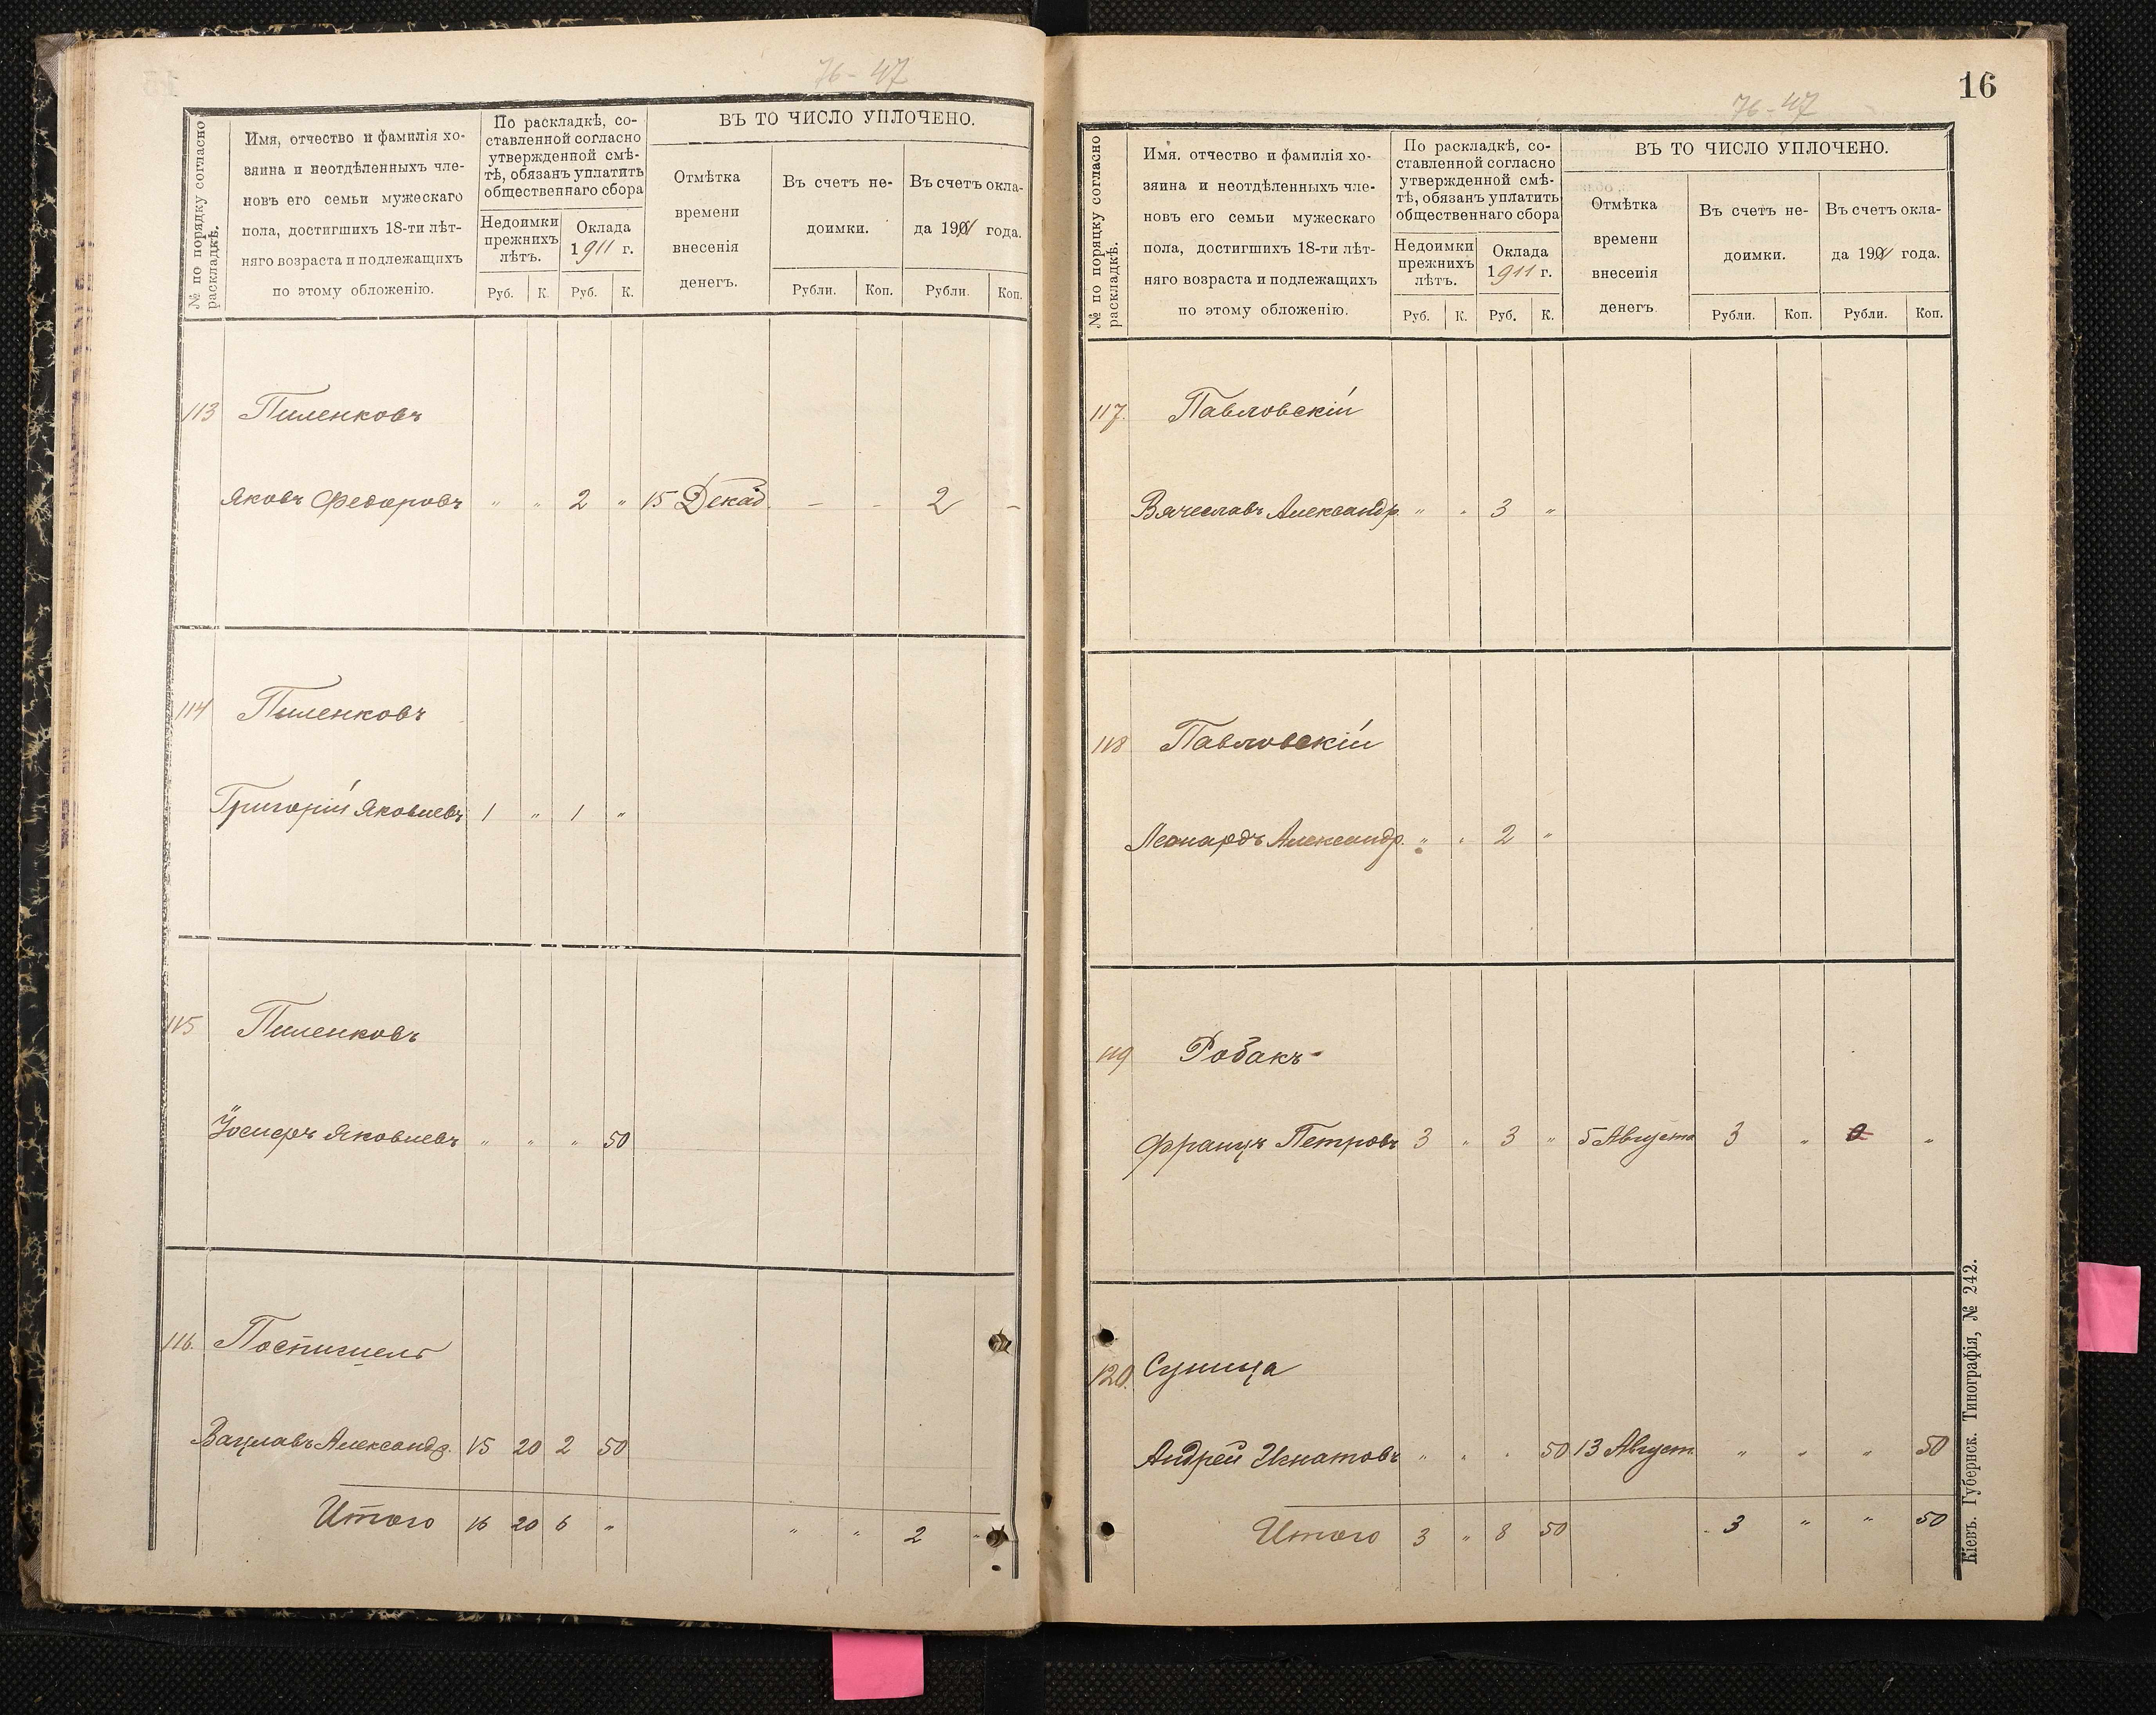 76-47
№ по порядку согласно раскладкѣ.
Имя, отчество и фамилія хо-
зяина и неотдѣленныхъ чле-
новъ его семьи мужескаго
пола, достигшихъ 18-ти лѣт-
няго возраста и подлежащихъ
по этому обложенію.
По раскладкѣ, со-
ставленной согласно
утвержденной смѣ-
тѣ, обязанъ уплатить
общественнаго сбора
Недоимки
прежнихъ
лѣтъ.
Оклада
1911 г.
Руб. К. Руб. К.
ВЪ ТО ЧИСЛО УПЛОЧЕНО.
Отмѣтка
времени
внесенія
денегъ.
Въ счетъ не-
доимки.
Въ счетъ окла-
да 1911 года.
Рубли. Коп. Рубли. Коп.
113 Пиленковъ
Яковъ Федоровъ " " 2 " 15 Декаб. — — 2 —
114 Пиленковъ
Григорій Яковлевъ 1 " 1 "
115 Пиленковъ
Іосифъ Яковлевъ " " " 50
116. Поспишель
Вацлавъ Александр. 15 20 2 50
Итого 16 20 6 " " " 2 "
16
76-47
№ по порядку согласно раскладкѣ.
Имя. отчество и фамилія хо-
зяина и неотдѣленныхъ чле-
новъ его семьи мужескаго
пола, достигшихъ 18-ти лѣт-
няго возраста и подлежащихъ
по этому обложенію.
По раскладкѣ, со-
ставленной согласно
утвержденной смѣ-
тѣ, обязанъ уплатить
общественнаго сбора
Недоимки
прежнихъ
лѣтъ.
Оклада
1911 г.
Руб. К. Руб. К.
ВЪ ТО ЧИСЛО УПЛОЧЕНО.
Отмѣтка
времени
внесенія
денегъ.
Въ счетъ не-
доимки.
Въ счетъ окла-
да 1911 года.
Рубли. Коп. Рубли. Коп.
117. Павловскій
Вячеславъ Александр. " " 3 "
118 Павловскій
Леонардъ Александр. " " 2 "
119 Робакъ
Францъ Петровъ 3 " 3 " 5 Августа 3 " "
120. Сушца
Андрей Игнатовъ " " " 50 13 Август. " " " 50
Итого 3 " 8 50 3 " " 50
Кіевъ. Губернск. Типографія, № 242.